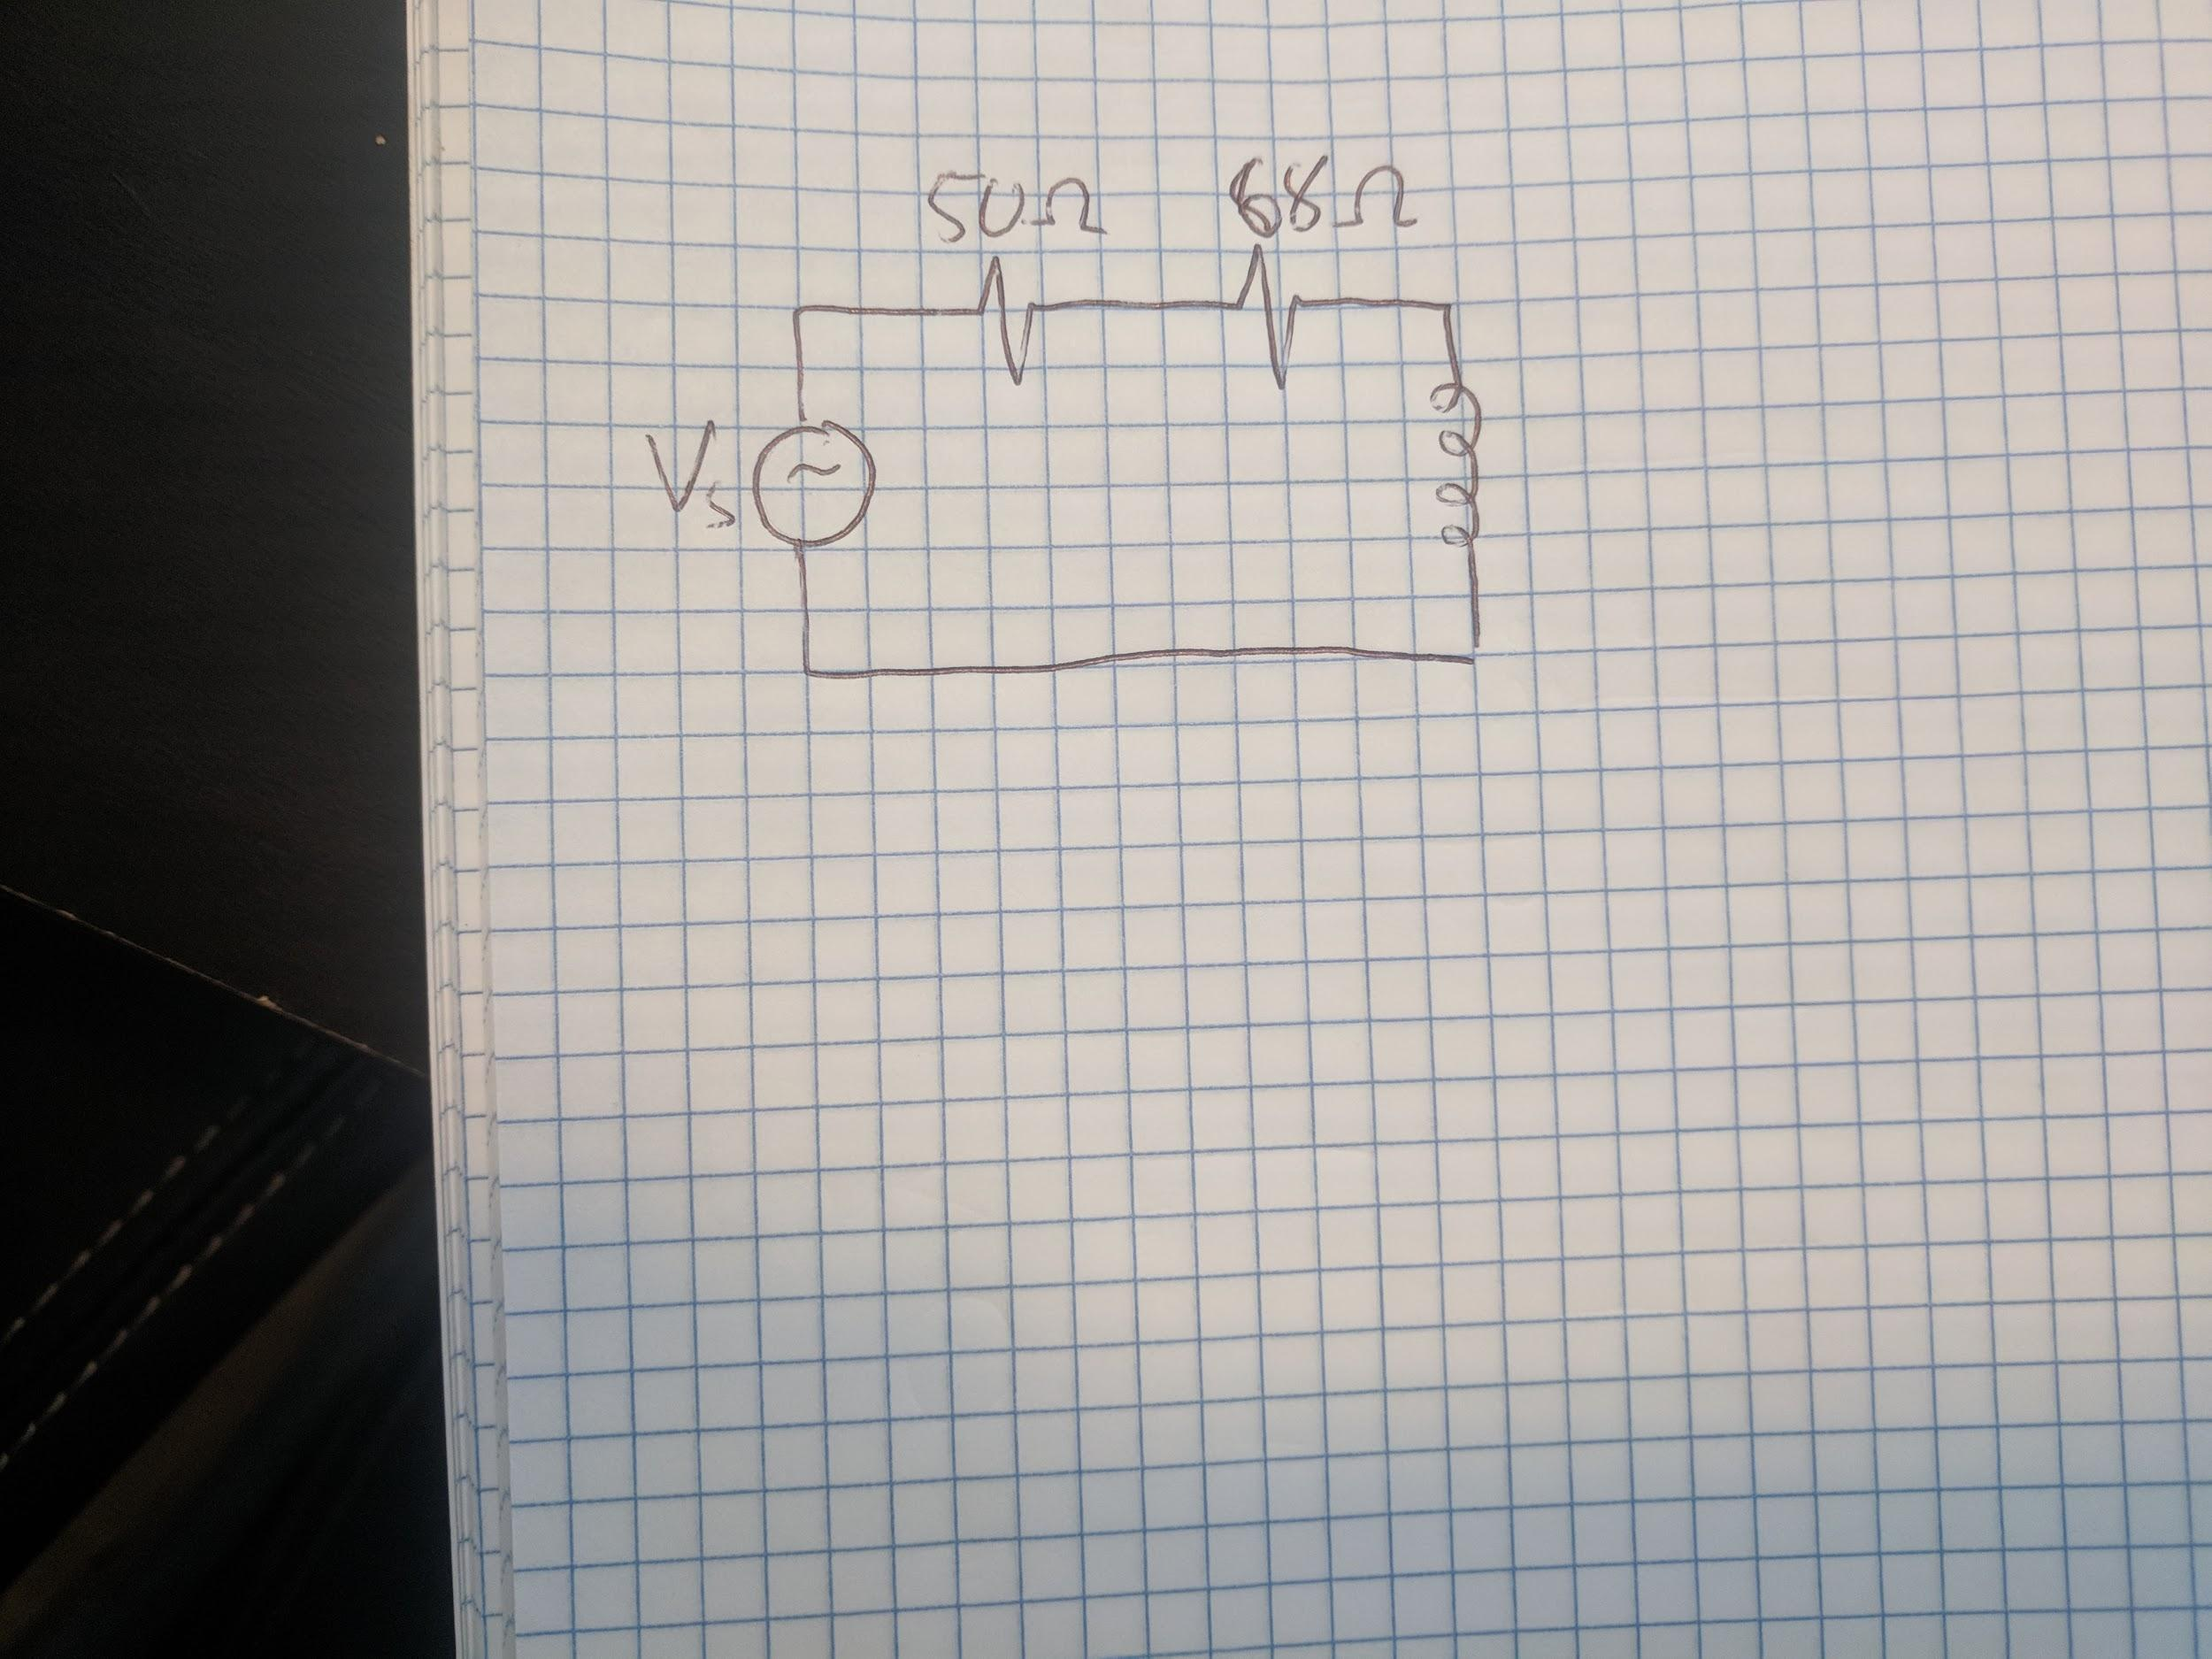 50Ω 68Ω
Vs